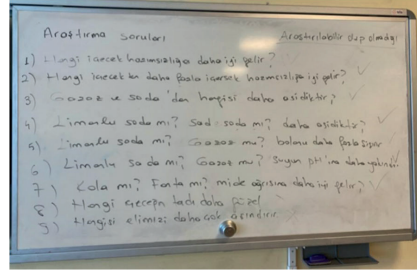 Araştırma soruları Araştırılabilir olup olmadığı
1) Hangi içecek hazımsızlığa daha iyi gelir?
2) Hangi içecekten daha fazla içersek hazımsızlığa iyi gelir?
3) Gazoz ve soda'dan hangisi daha asidiktir?
4) Limonlu soda mı? Sade soda mı? daha asidiktir?
5) Limonlu soda mı? Gazoz mu? balonu daha fazla şişirir
6) Limonlu soda mı? Gazoz mu? suyun pH'ına daha yakındır
7) Kola mı? Fanta mı? mide ağrısına daha iyi gelir?
8) Hangi içeceğin tadı daha güzel
9) Hangisi elimizi daha çok aşındırır